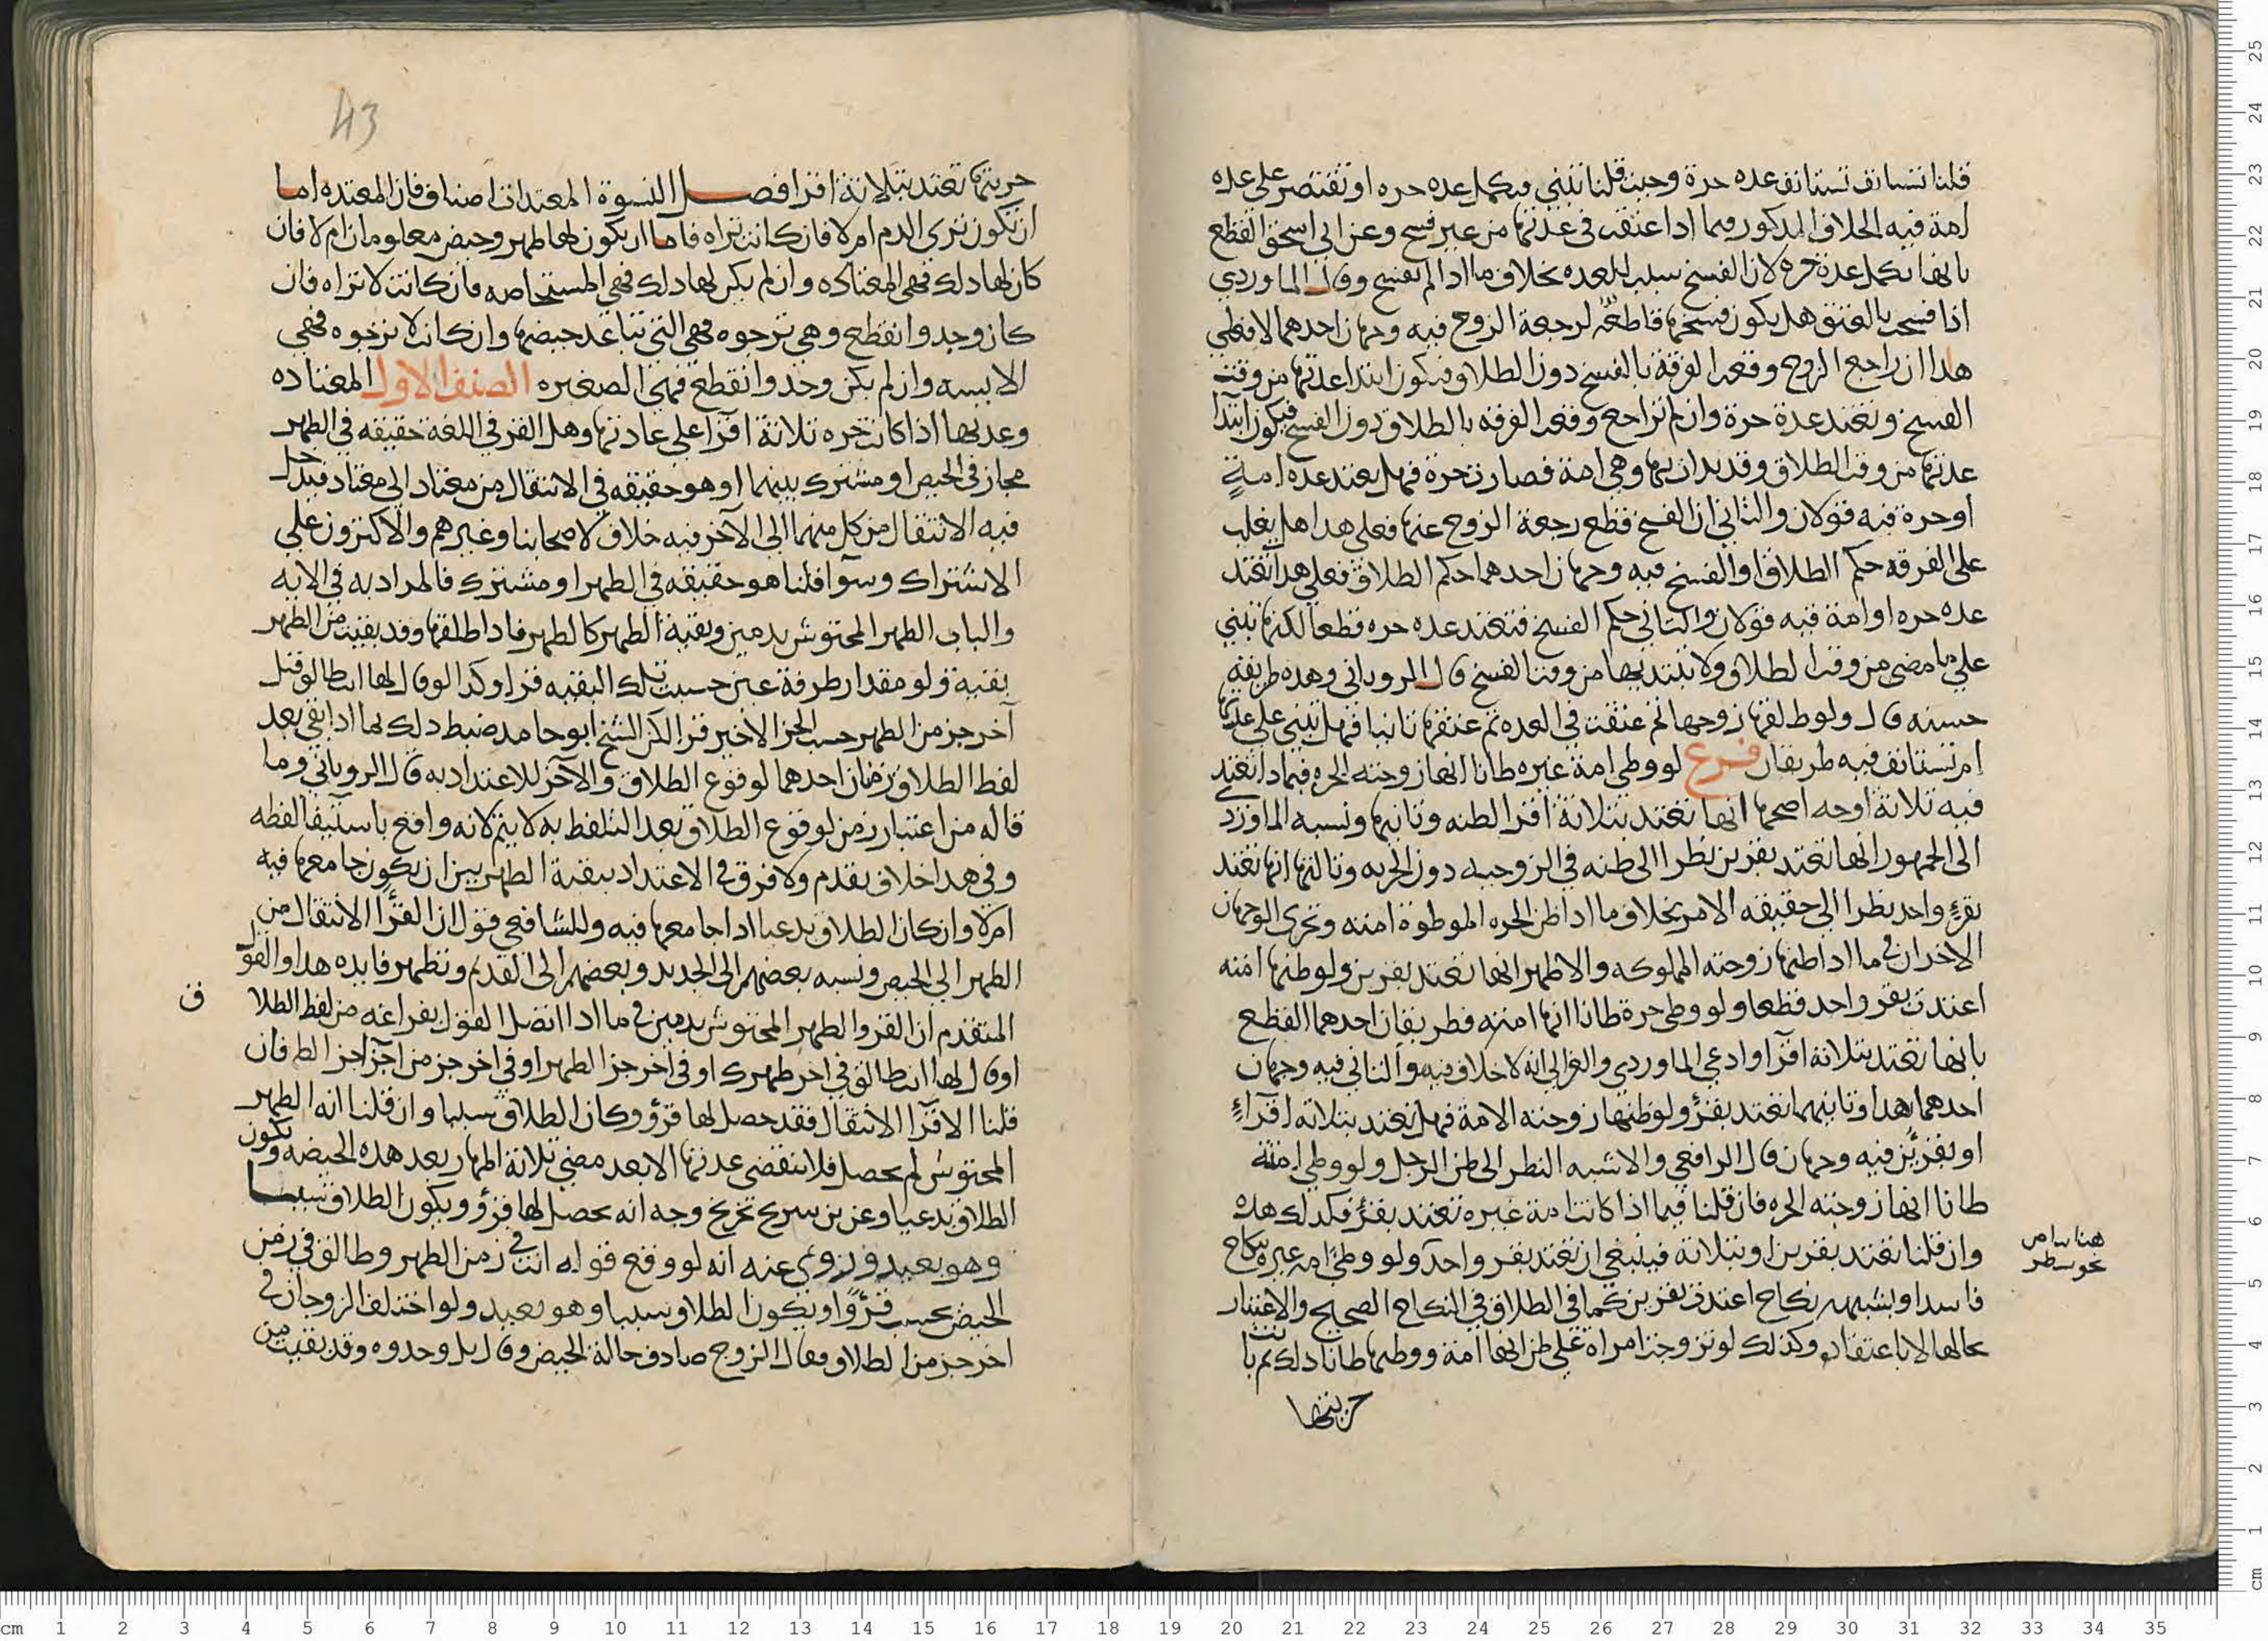 قلنا تستانف تستانف عده حرة وحيث قلنا تبني فيكمل عده حره او تقتصر على عده
امة فيه الخلاف المذكور فيما اذا عتقت في عدتها من غير فسخ وعن ابي اسحق القطع
بانها تكمل عدة حره لان الفسخ سبب للعده بخلاف ما اذا لم تفسخ وقال الماوردي
اذا فسخت بالعتق هل يكون فسخها قاطعا لرجعة الزوج فيه وجهان احدهما لا فعلى
هذا ان راجع الزوج وقعت الفرقة بالفسخ دون الطلاق فيكون ابتدا عدتها من وقت
الفسخ وتعتد عدة حرة وان لم تراجع وقعت الفرقه بالطلاق دون الفسخ فيكون ابتدا
عدتها من وقت الطلاق وقد بدات بها وهي امة فصارت حرة فهل تعتد عده امةٍ
او حرة فيه قولان والثاني ان الفسخ قطع رجعة الزوج عنها فعلى هذا هل يغلب
على الفرقه حكم الطلاق او الفسخ فيه وجهان احدهما حكم الطلاق فعلى هذا تعتد
عده حره او امة فيه قولان والثاني حكم الفسخ فتعتد عده حره قطعا لكنها تبني
على ما مضى من وقت الطلاق ولا تبتدي بها من وقت الفسخ قال الروياني وهذه طريقة
حسنه قال ولو طلقها زوجها ثم عتقت في العده ثم عتقها ثانيا فهل تبني على عدتها
ام تستانف فيه طريقان فرع لو وطى امة غيره ظانا انها زوجته الحره فيماذا تعتد
فيه ثلاثة اوجه اصحها انها تعتد بثلاثة اقرا لظنه وثانيها ونسبه الماوردي
الى الجمهور انها تعتد بقرين نظرا الى ظنه في الزوجيه دون الحريه وثالثها انها تعتد
بقرءٍ واحد نظرا الى حقيقه الامر بخلاف ما اذا ظن الحره الموطوة امته وتجري الوجهان
الاخران في ما اذا ظنها زوجته المملوكه والاظهر انها تعتد بقرين ولو ظنها امته
اعتدت بقر واحد قطعا ولو وطى حرة ظانا انها امته فطريقان احدهما القطع
بانها تعتد بثلاثة اقرا وادعى الماوردي والغزالي انه لا خلاف فيه والثاني فيه وجهان
احدهما هذا وثانيهما تعتد بقرؤ ولو ظنها زوجته الامة فهل تعتد بثلاثه اقراءٍ
او بقرئين فيه وجهان قال الرافعي والاشبه النظر الى ظن الرجل ولو وطى امته
ظانا انها زوجته الحره فان قلنا فيما اذا كانت امة غيره تعتد بقرؤ فكذلك هذه
وان قلنا تعتد بقرين او بثلاثة فينبغي ان تعتد بقر واحد ولو وطئ امه غيره بنكاح
فاسد او بشبهه نكاح اعتدت بقرين كما في الطلاق في النكاح الصحيح والاعتبار
بحالها لا باعتقاده وكذلك لو تزوجت امراة على ظن انها امة ووطيها ظانا ذلك ثم بانت
حريتها
هنا بياض
نحو سطر
43
حريتها تعتد بثلاثة اقرا فصل النسوة المعتدات اصناف فان المعتده اما
ان تكون ترى الدم ام لا فان كانت تراه فاما ان يكون لها طهر وحيض معلومان ام لا فان
كان لها ذلك فهي المعتاده وان لم يكن لها ذلك فهي المستحاضه فان كانت لا تراه فان
كان وجد وانقطع وهي ترجوه فهي التي تباعد حيضها وان كانت لا ترجوه فهي
الايسه وان لم يكن وجد وانقطع فهي الصغيره الصنف الاول المعتاده
وعدتها اذا كانت حره ثلاثة اقرا على عادتها وهل القر في اللغة حقيقه في الطهر
مجاز في الحيض او مشترك بينهما او هو حقيقه في الانتقال من معتاد الى معتاد فيدخل
فيه الانتقال من كل منهما الى الآخر فيه خلاف لاصحابنا وغيرهم والاكثرون على
الاشتراك وسوا قلنا هو حقيقه في الطهر او مشترك فالمراد به في الايه
والباب الطهر المحتوش بدمين وبقية الطهر كالطهر فاذا طلقها وقد بقيت من الطهر
بقيه ولو مقدار طرفة عين حسبت تلك البقيه قرا وكذا لو قال لها انت طالق قبل
آخر جز من الطهر حسب الجز الاخير قرا لكن الشيخ ابو حامد ضبط ذلك بما اذا بقي بعد
لفظ الطلاق زمنان احدهما لوقوع الطلاق والآخر للاعتداد به قال الروياني وما
قاله من اعتبار زمن لوقوع الطلاق بعد التلفظ به لا يتم لانه واقع باستيفا لفظه
وفي هذا خلاف تقدم ولا فرق في الاعتداد ببقية الطهر بين ان يكون جامعها فيه
ام لا وان كان الطلاق بدعيا اذا جامعها فيه وللشافعي قول ان القرا الانتقال من
الطهر الى الحيض ونسبه بعضهم الى الجديد وبعضهم الى القديم وتظهر فايده هذا والقول
المتقدم ان القر والطهر المحتوش بدمين في ما اذا اتصل القول بفراغه من لفظ الطلا
ق
او قال لها انت طالق في اخر طهرك او في آخر جز الطهر او في اخر جز من آخر اجزا الطهر فان
قلنا الاقرا الانتقال فقد حصل لها قرؤ وكان الطلاق سنيا وان قلنا انه الطهر
المحتوش لم يحصل فلا تنقضي عدتها الا بعد مضي ثلاثة اطهار بعد هذه الحيضه ويكون
الطلاق بدعيا وعن بن سريج تخريج وجه انه يحصل لها قرؤ ويكون الطلاق سنيا
وهو بعيد وروي عنه انه لو وقع قوله انت في زمن الطهر وطالق في زمن
الحيض يحسب قرؤا ويكون الطلاق سنيا وهو بعيد ولو اختلف الزوجان في
اخر جز من الطلاق فقال الزوج صادف حالة الحيض وقال بل وحدوه وقد بقيت من